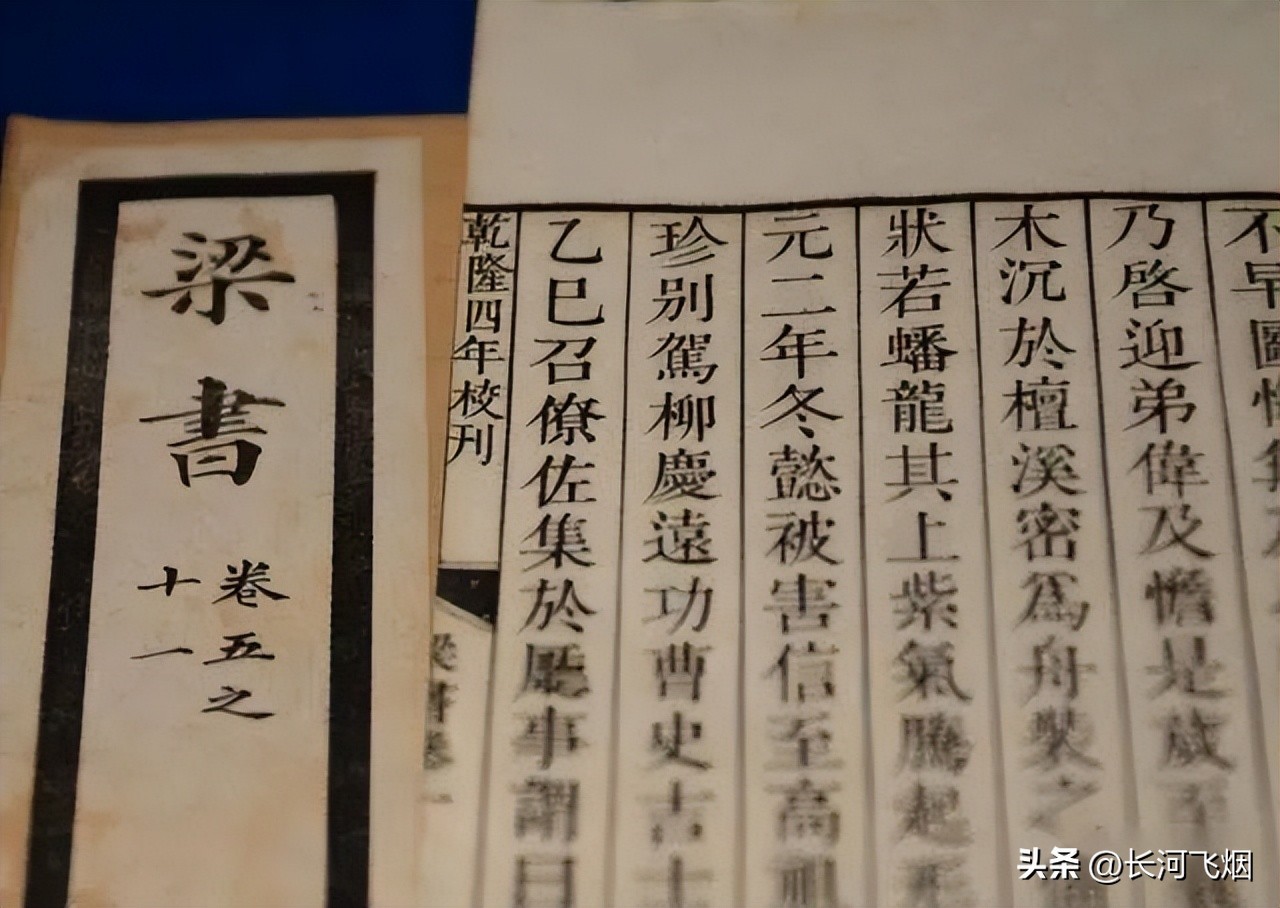 梁書
卷五之
十一
不早圖
乃啓迎弟偉及憺是歲至
木沉於檀溪密爲舟裝之
狀若蟠龍其上紫氣騰起
元二年冬懿被害信至高祖
珍別駕柳慶遠功曹史吉士
乙巳召僚佐集於廳事謂曰
乾隆四年校刊
梁書卷一
头条 @长河飞烟